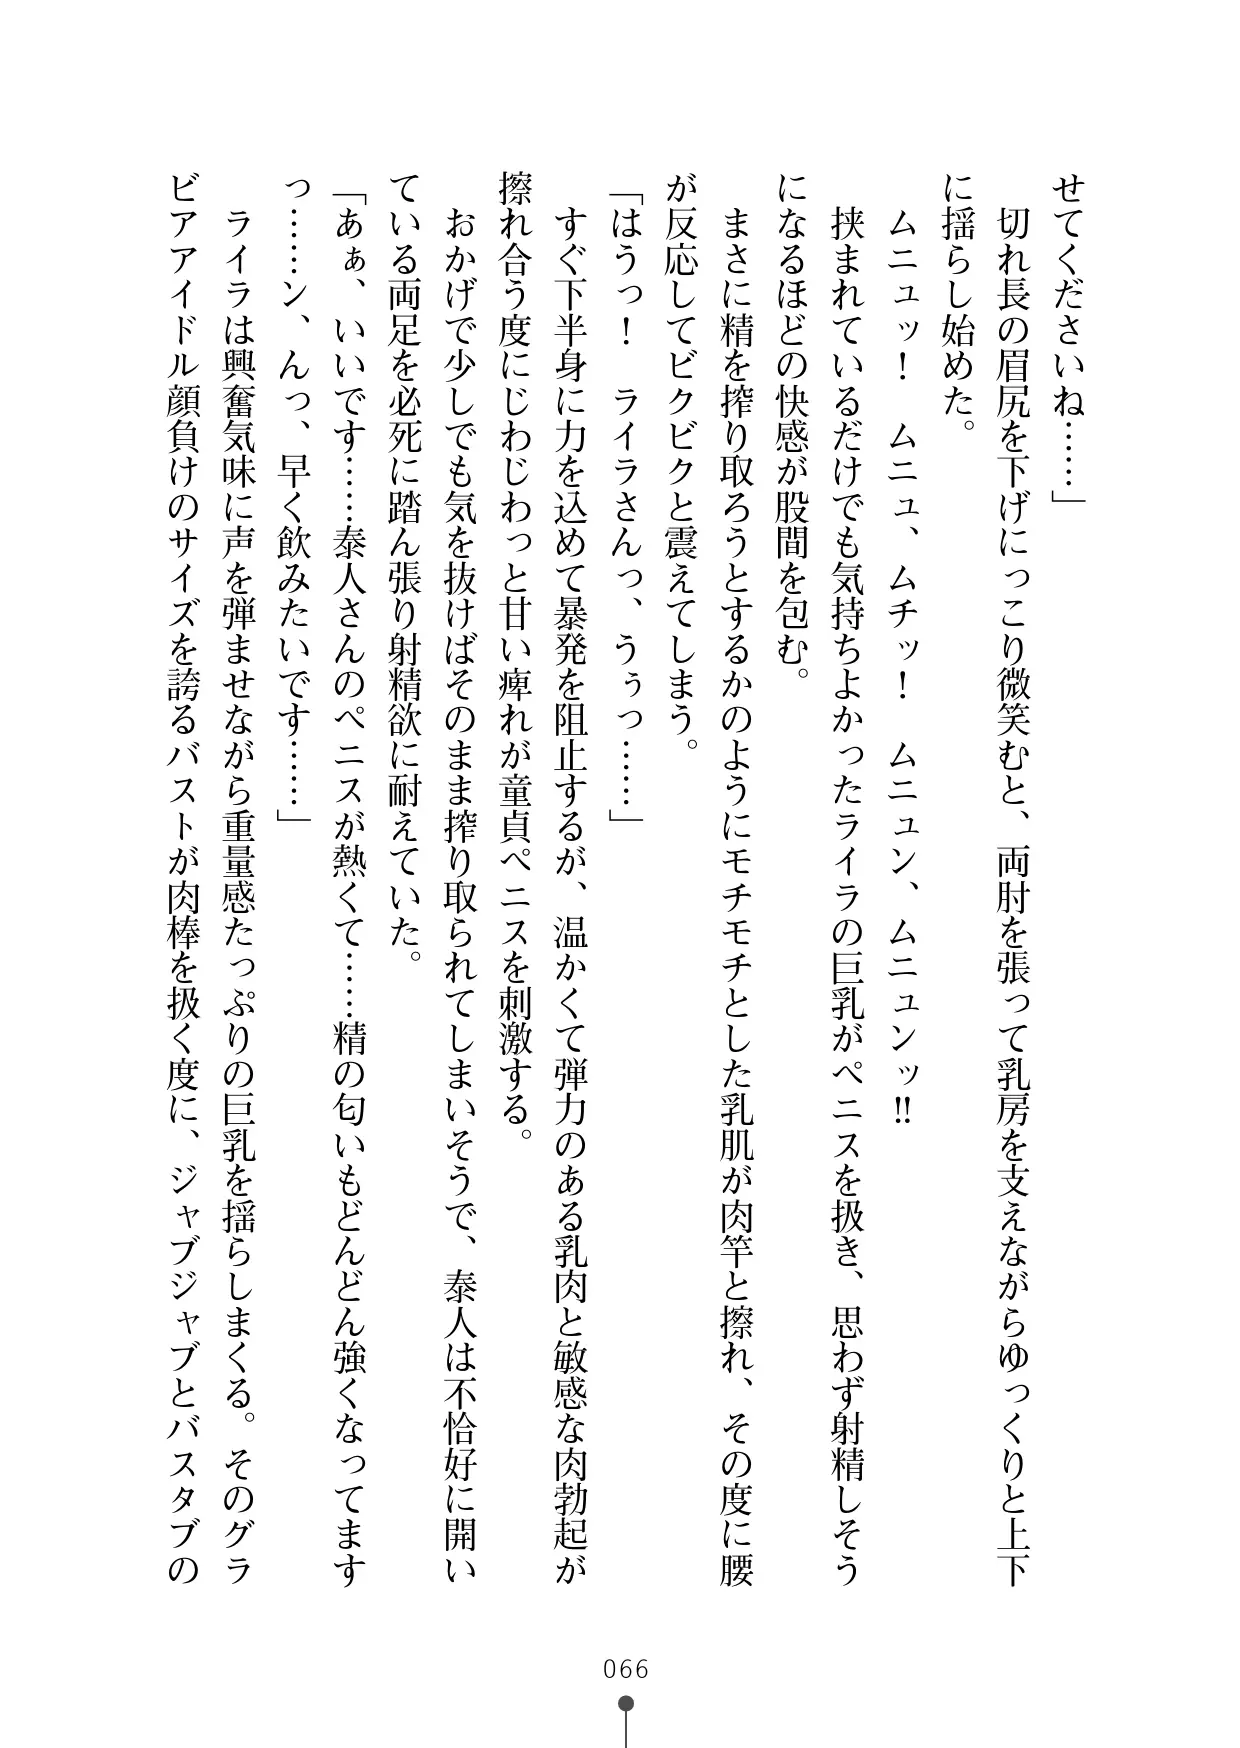 せてくださいね……」
　切れ長の眉尻を下げにっこり微笑むと、両肘を張って乳房を支えながらゆっくりと上下
に揺らし始めた。
　ムニュッ！　ムニュ、ムチッ！　ムニュン、ムニュンッ‼
　挟まれているだけでも気持ちよかったライラの巨乳がペニスを扱き、思わず射精しそう
になるほどの快感が股間を包む。
　まさに精を搾り取ろうとするかのようにモチモチとした乳肌が肉竿と擦れ、その度に腰
が反応してビクビクと震えてしまう。
「はうっ！　ライラさんっ、うぅっ……」
　すぐ下半身に力を込めて暴発を阻止するが、温かくて弾力のある乳肉と敏感な肉勃起が
擦れ合う度にじわじわっと甘い痺れが童貞ペニスを刺激する。
　おかげで少しでも気を抜けばそのまま搾り取られてしまいそうで、泰人は不恰好に開い
ている両足を必死に踏ん張り射精欲に耐えていた。
「あぁ、いいです……泰人さんのペニスが熱くて……精の匂いもどんどん強くなってます
っ……ン、んっ、早く飲みたいです……」
　ライラは興奮気味に声を弾ませながら重量感たっぷりの巨乳を揺らしまくる。そのグラ
ビアアイドル顔負けのサイズを誇るバストが肉棒を扱く度に、ジャブジャブとバスタブの
066